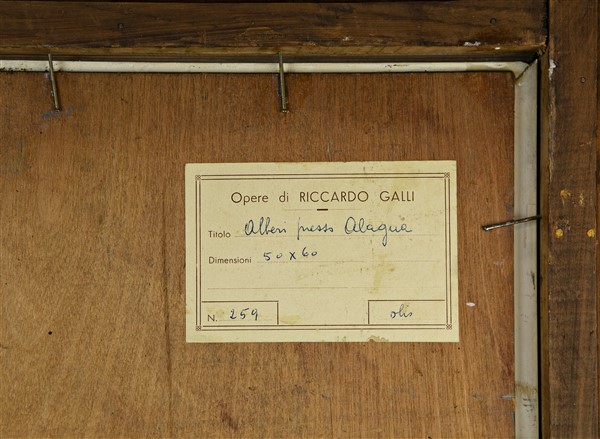 Opere di RICCARDO GALLI
Titolo Alberi presso Alagna
Dimensioni 50 x 60
N. 259 olio